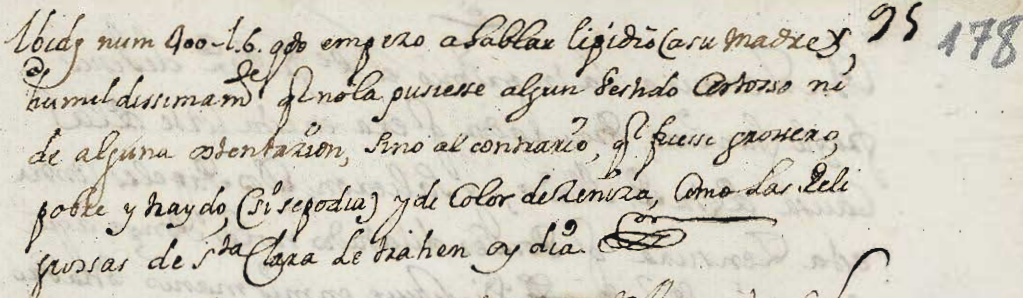 Ibidz num 400-l.6. qdo empezo a hablar lipidio (a su Madre), 95 178
humildissimamte de q no la pusiesse algun bestido Costosso ni
de alguna ostentazion, sino al contrario, q fuesse grossero,
pobre y traydo, (si se podia) y de Color de Zeniza, Como las Reli
giossas de Sta Clara le trahen oy dia.